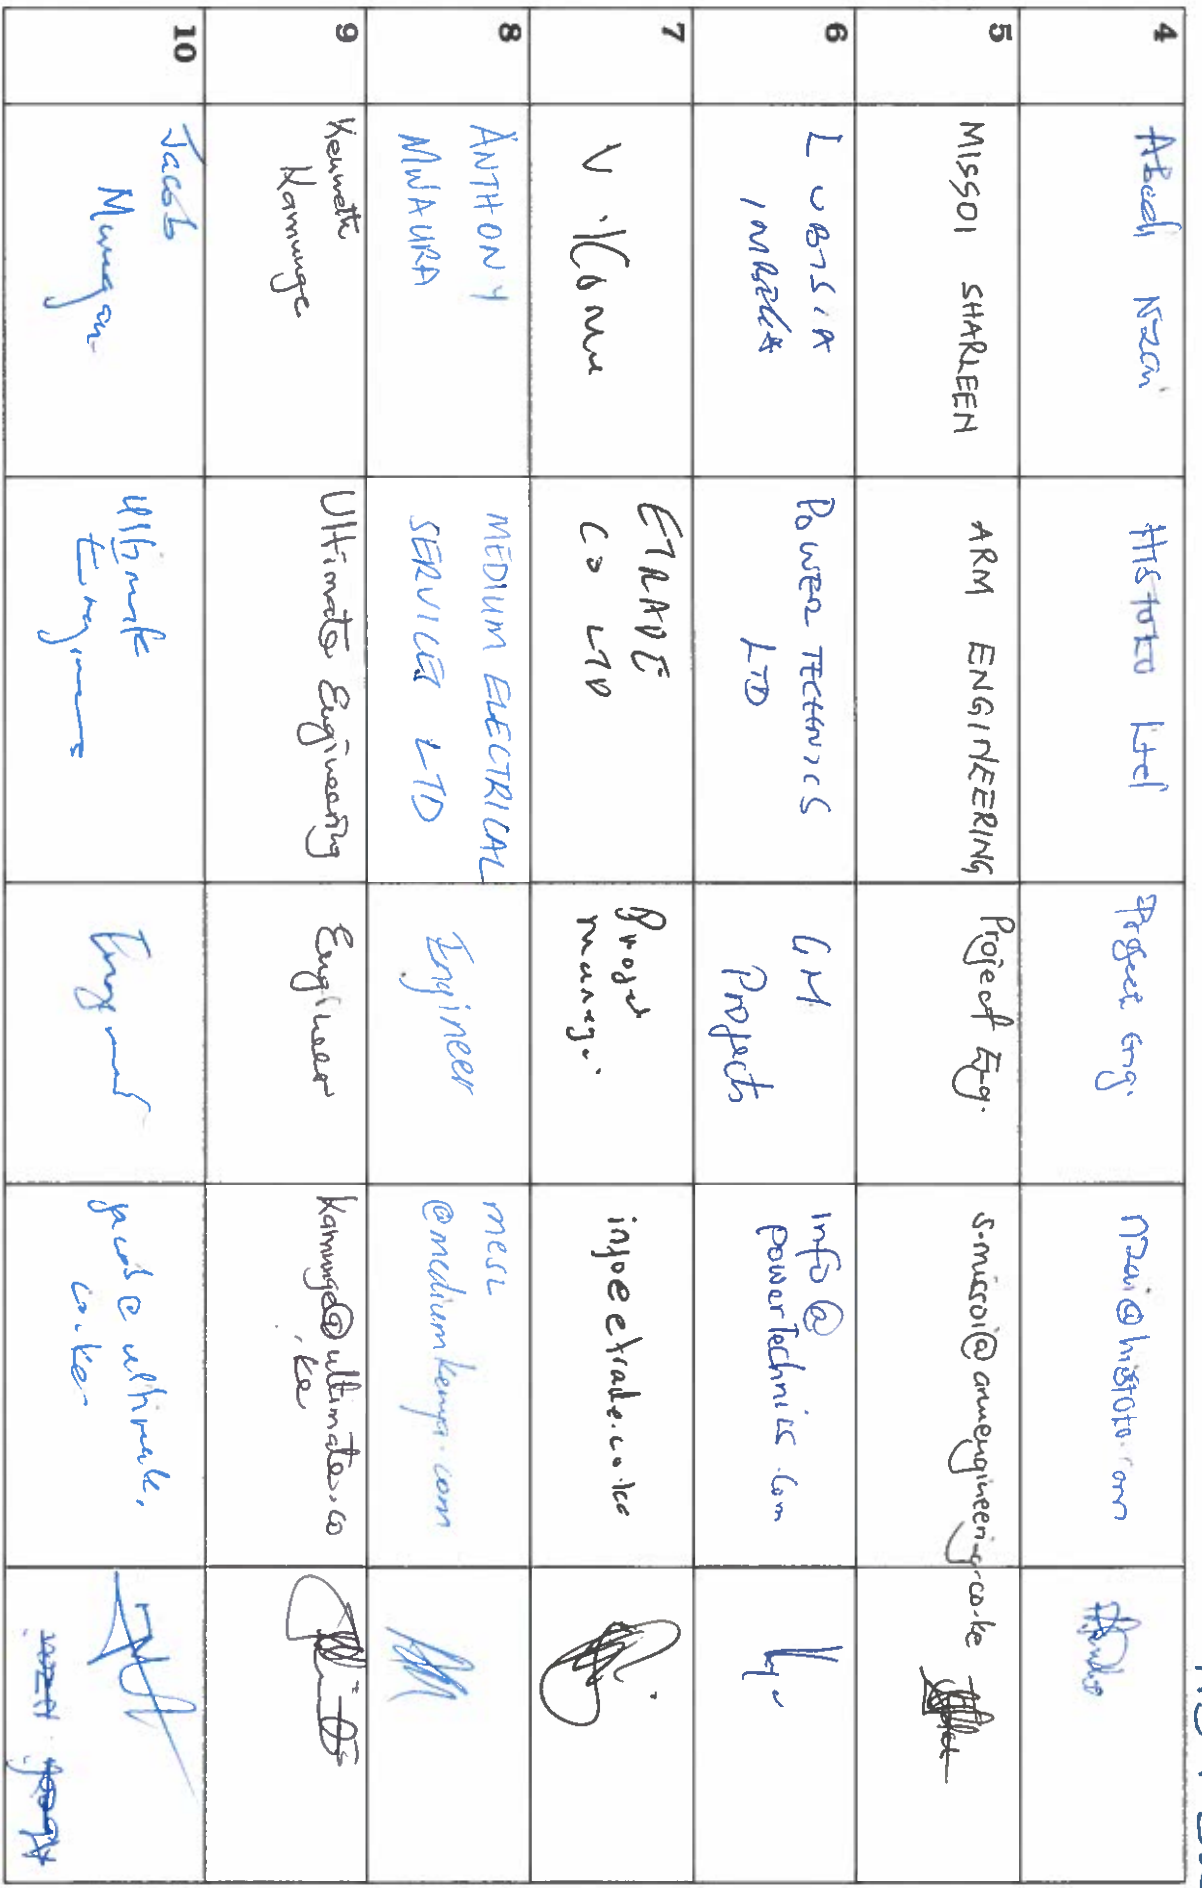 4
Abedi Nzai
Histoto Ltd
Project Eng.
nzai@histoto.com
5
MISSOI SHARLEEN
ARM ENGINEERING
Project Eng.
s.missoi@armengineering.co.ke
6
LUBISIA
POWER TECHNICS
LTD
GM
Projects
info@
powertechnics.com
7
V.
ETRADE
CO LTD
Project
manager
infoeetrade.co.ke
8
ANTHONY
MWAURA
MEDIUM ELECTRICAL
SERVICES LTD
Engineer
mesl
@mediumkenya.com
9
Kenneth
Kamunge
Ultimate Engineering
Engineer
Kamunge@ultimate.co
.ke
10
Jacob
Ultimate
jacob@ultimate.
co.ke